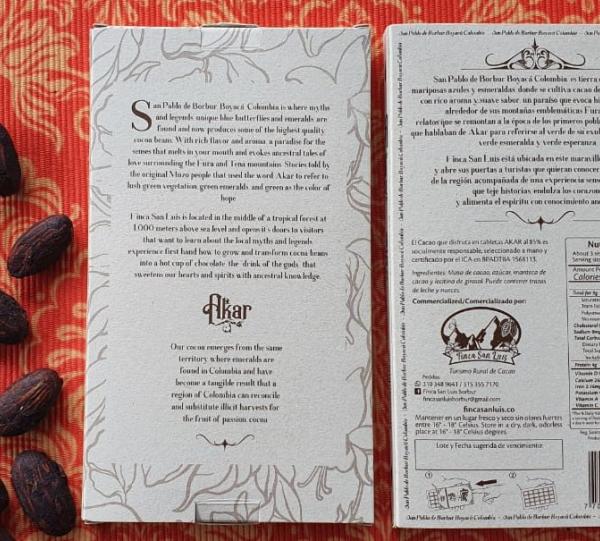 San Pablo de Borbur Boyacá Colombia is where myths
and legends, unique blue butterflies and emeralds are
found and now produces some of the highest quality
cocoa beans. With rich flavor and aroma, a paradise for the
senses that melts in your mouth and evokes ancestral tales of
love surrounding the Fura and Tena mountains. Stories told by
the original Muzo people that used the word Akar to refer to
lush green vegetation, green emeralds, and green as the color of
hope
Finca San Luis is located in the middle of a tropical forest at
1,000 meters above sea level and opens it's doors to visitors
that want to learn about the local myths and legends,
experience first hand how to grow and transform cocoa beans
into a hot cup of chocolate, the "drink of the gods" that
sweetens our hearts and spirits with ancestral knowledge.
Akar
Our cocoa emerges from the same
territory where emeralds are
found in Colombia and have
become a tangible result that a
region of Colombia can reconcile
and substitute illicit harvests for
the fruit of passion, cocoa
San Pablo de Borbur Boyacá Colombia
San Pablo de Borbur Boyacá Colombia, es tierra
mariposas azules y esmeraldas, donde se cultiva cacao de
con rico aroma y suave sabor, un paraíso que evoca
alrededor de sus montañas emblemáticas Fura
relatos que se remontan a la época de los primeros
que hablaban de Akar para referirse al verde de su
verde esmeralda y verde esperanza
Finca San Luis está ubicada en este
y abre sus puertas a turistas que quieran conocer
de la región, acompañada de una experiencia
que teje historias, endulza los
y alimenta el espíritu con conocimiento
El Cacao que disfruta en tabletas AKAR al 85% es
socialmente responsable, seleccionado a mano y
certificado por el ICA en BPADTBA 1568113.
Ingredientes: Masa de cacao, azúcar, manteca de
cacao y lecitina de girasol. Puede contener trazas
de leche y nueces.
Commercialized/Comercializado por:
Finca San Luis
Turismo Rural de Cacao
Pedidos:
310 348 9643 / 315 355 7170
Finca San Luis Borbur
fincasanluisborbur@gmail.com
fincasanluis.co
Mantener en un lugar fresco y seco sin olores fuertes
entre 16° - 18° Celsius. Store in a dry, dark, odorless
place at 16° - 18° Celsius degrees.
Lote y Fecha sugerida de vencimiento:
1
2
San Pablo de Borbur Boyacá Colombia